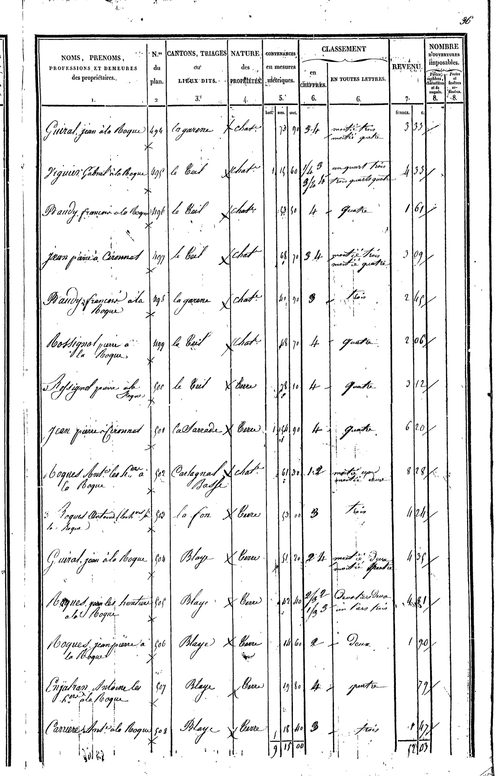 96
NOMS, PRENOMS,
PROFESSIONS ET DEMEURES
des propriétaires.
N.os
du
plan.
CANTONS, TRIAGES
ou
LIEUX DITS.
NATURE
des
PROPRIÉTÉS.
CONTENANCES
en mesures
métriques.
CLASSEMENT
en
CHIFFRES.
EN TOUTES LETTRES.
REVENU.
NOMBRE
D'OUVERTURES
imposables.
1. 2 3. 4. 5. 6. 6. 7. 8. 8.
Guiral, jean à la Roque 494 la garene chat. 73 90 3 4 moitié trois 3 33
moitié quatre
Viguier Gabriel à la Roque 495 le Teil chat. 1 15 60 1/4 3 un quart trois 4 33
3/4 4 trois quarts quatre
Bandy françois à la Roque 496 le Teil chat. 4 quatre 1 61
jean pierre à Ceronnat 497 le Teil chat 68 70 3 4 moitié trois 3 09
moitié quatre
Bandy, françois à la 498 la garene chat. 40 90 3 trois 2 45
Roque
Rossignol pierre à 499 le Teil chat. 68 70 4 quatre 2 06
la Roque
Rossignol pierre à la 500 le Teil Terre 78 4 quatre 3 12
Roque
jean pierre à Ceronnat 501 la Sarrade Terre 1 4 quatre 6 20
Roques Ant.ne les h.ers à 502 Castagnal chat. 1 2 moitié un 8 28
la Roque Basse moitié deux
Roques 503 la fon Terre 53 00 3 trois 4 24
la Roque
Guiral, jean à la Roque 504 Blaye Terre 51 20 2 4 moitié Deux 4 35
moitié quatre
Roques, jean les héritiers 505 Blaye Terre 42 40 2/3 2 Deux tiers Deux 4 81
à la Roque 1/3 3 un tiers trois
Roques, jean pierre à 506 Blaye Terre 14 60 2 Deux 1 90
la Roque
Enjalran Antoine les 507 Blaye Terre 19 80 4 quatre 79
h.ers à la Roque
Carriere, Ant.ne à la Roque 508 Blaye Terre 18 40 3 trois 1 47
9 15 00 52 03